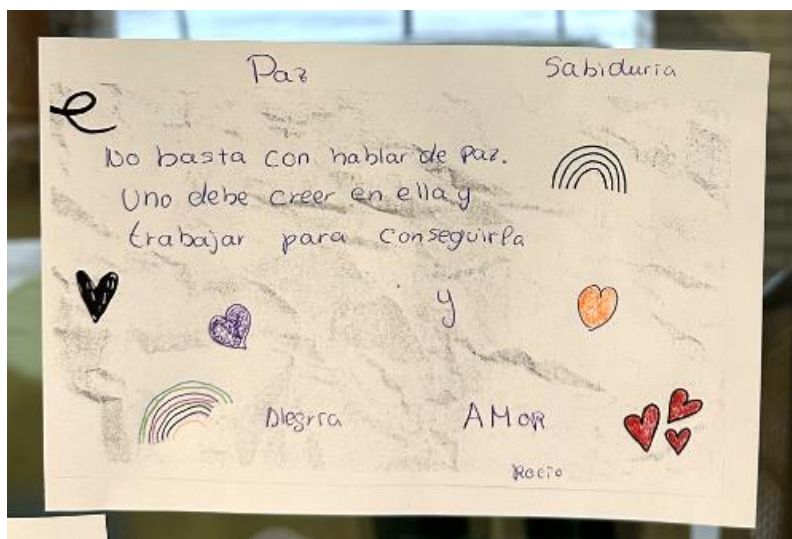 Paz Sabiduría
No basta con hablar de paz.
Uno debe creer en ella y
trabajar para conseguirla
y
Alegría AMOR
Rocío